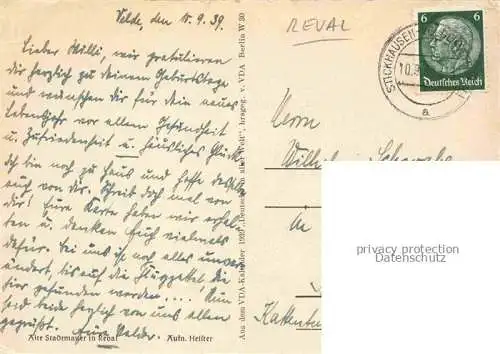 Velde, den 15.9.39.
REVAL
Lieber Willi, wir gratulieren
dir herzlich zu deinem Geburtstage
und wünschen dir für dein neues
Lebensjahr vor allem Gesundheit
u. Zufriedenheit u. häusliches Glück
Ich bin noch zu haus und hoffe dasselbe
auch von dir. Schreib doch mal von
dir! Eure Karte haben wir erhal-
ten u. denken Euch vielmals
dafür. Bei uns ist noch alles unver-
ändert, bis auf die Flugzettel die
hier gefunden worden .... Nun
seid beide herzlich von uns allen
gegrüßt. Eure Velder.
Alte Stadtmauer in Reval Aufn. Heister
Aus dem VDA-Kalender 1939 „Deutsche in aller Welt", hrsgeg. v. VDA Berlin W 30
6 6
Deutsches Reich
STICKHAUSEN
10.9
a
Herrn
Wilhelm
in
privacy protection
Datenschutz